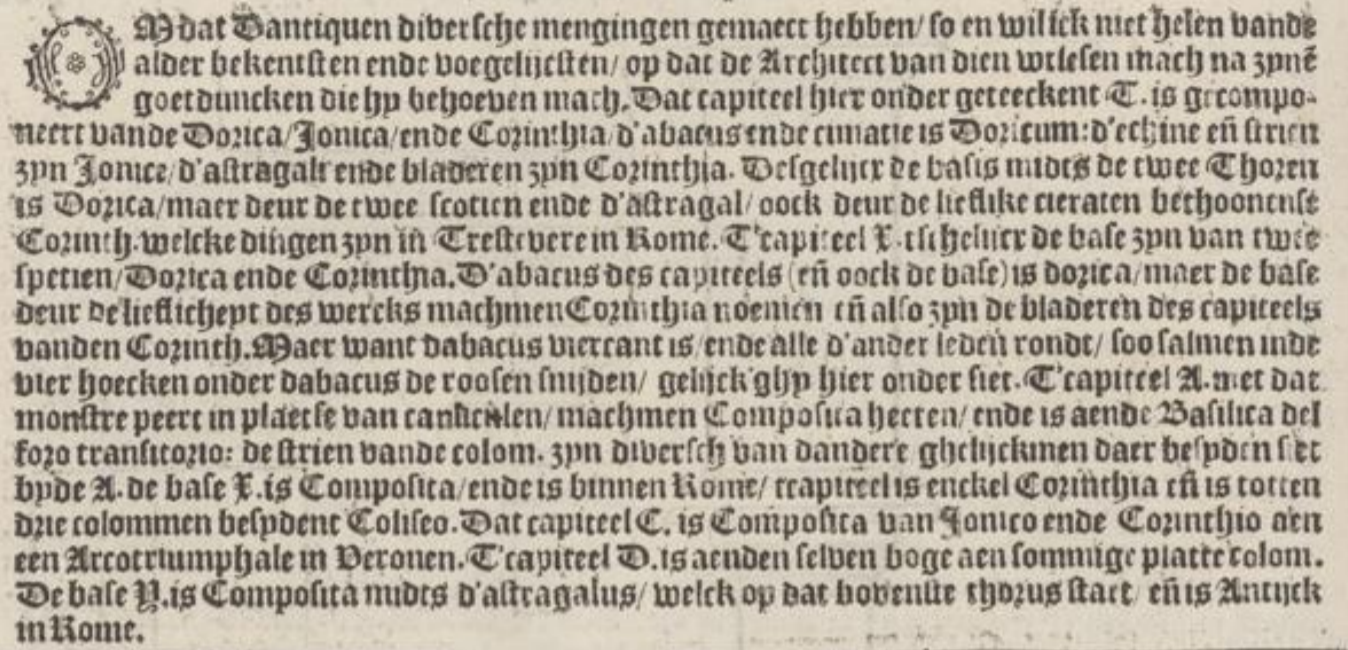 OM dat Dantiquen diversche mengingen gemaect hebben/ so en wil ick niet helen vande
alder bekentsten ende voegelijcsten/ op dat de Architect van dien wtlesen mach na zynē
goetduncken die hy behoeven mach. Dat capiteel hier onder geteeckent T. is gecompo-
neert vande Dorica/Jonica/ende Corinthia/d'abacus ende cimatie is Doricum: d'echine eñ strien
zyn Jonice/d'astragale ende bladeren zyn Corinthia. Desgelijcx de basis midts de twee Thoren
is Dorica/maer deur de twee scotien ende d'astragal/oock deur de lieflike cieraten bethoonense
Corinth. welcke dingen zyn in Trestevere in Rome. T'capiteel X. tsi helijcx de base zyn van twee
specien/Dorica ende Corinthia. D'abacus des capiteels (eñ oock de base) is dorica/maer de base
deur de lieflicheyt des wercks machmen Corinthia noemen eñ also zyn de bladeren des capiteels
vanden Corinth. Maer want dabacus viercant is/ende alle d'ander leden rondt/ soo salmen inde
vier hoecken onder dabacus de roosen snijden/ gelijck ghy hier onder siet. T'capiteel A. met dat
monstre peert in plaetse van caulicolen/machmen Composita heeten/ende is aende Basilica del
foro transitorio: de strien vande colom. zyn diversch van dandere ghelijckmen daer besyden siet
byde A. de base X. is Composita/ende is binnen Rome/ tcapiteel is enckel Corinthia eñ is totten
drie colommen besydent Coliseo. Dat capiteel C. is Composita van Jonico ende Corinthio aen
een Arcotriumphale in Veronen. T'capiteel D. is aenden selven boge aen sommige platte colom.
De base Y. is Composita midts d'astragalus/ welck op dat bovenste thorus staet/ eñ is Antijck
in Rome.